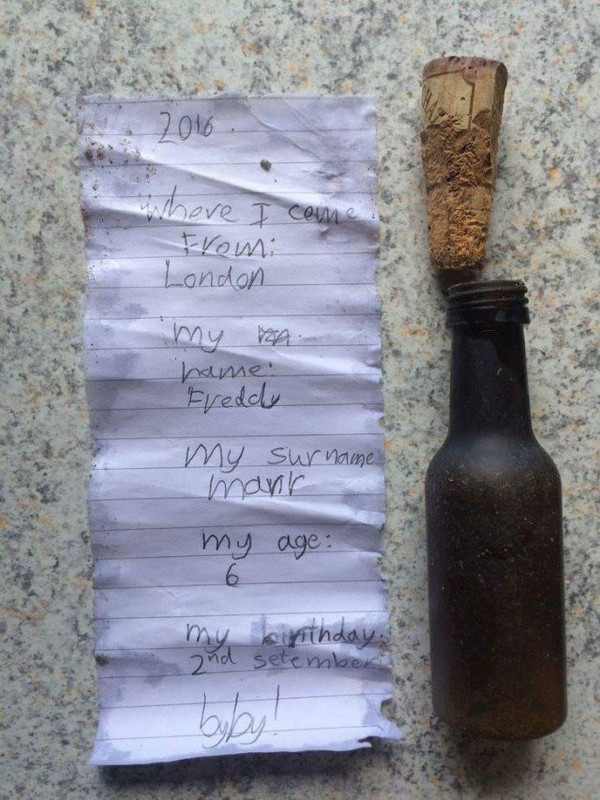 2016.
Where I come
From:
London
my
name:
Freddy
My surname
marr
my age:
6
my birthday:
2nd setember
byby!